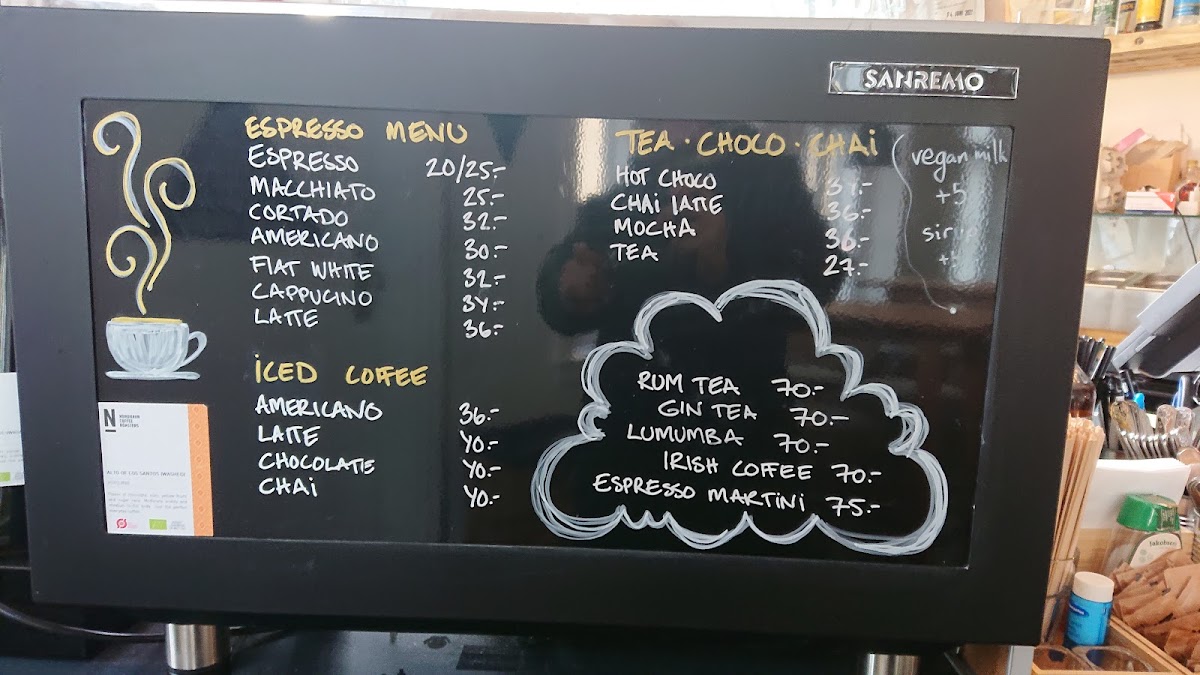 SANREMO
ESPRESSO MENU
ESPRESSO 20/25.-
MACCHIATO 25.-
CORTADO 32.-
AMERICANO 30.-
FLAT WHITE 32.-
CAPPUCINO 34.-
LATTE 36.-
ICED COFFEE
AMERICANO 36.-
LATTE 40.-
CHOCOLATE 40.-
CHAI 40.-
TEA · CHOCO · CHAI
HOT CHOCO
CHAI LATTE 36.-
MOCHA 36.-
TEA 27.-
vegan milk
+5
RUM TEA 70.-
GIN TEA 70.-
LUMUMBA 70.-
IRISH COFFEE 70.-
ESPRESSO MARTINI 75.-
N